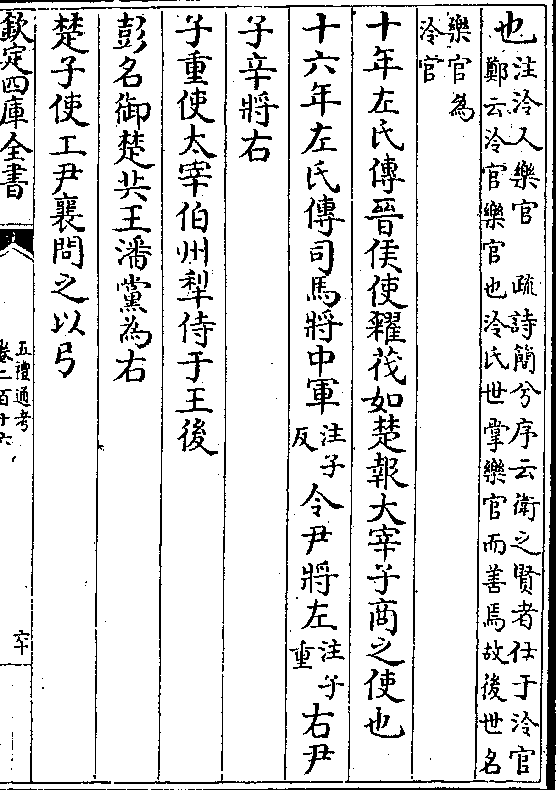 也注泠人樂官　疏詩簡兮序云衛之賢者仕于泠官
鄭云泠官樂官也泠氏世掌樂官而善焉故後世名
樂官為
泠官
十年左氏傳晉侯使糴茷如楚報大宰子商之使也
十六年左氏傳司馬將中軍注子反令尹將左注子重右尹
子辛將右
子重使太宰伯州犁侍于王後
彭名御楚共王潘黨為右
楚子使工尹襄問之以弓
欽定四庫全書
五禮通考
卷二百十六